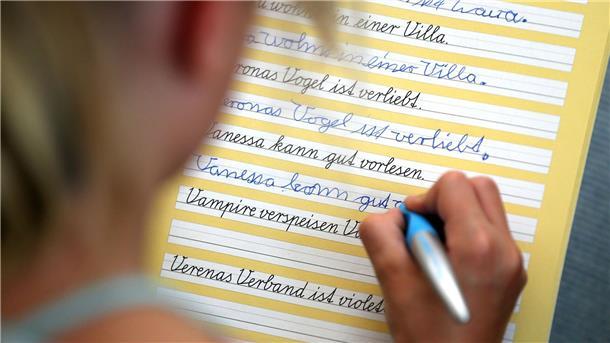 wohnt in einer Villa.
wohnt in einer Villa.
eronas Vogel ist verliebt.
eronas Vogel ist verliebt.
Vanessa kann gut vorlesen.
Vanessa kann gut
Vampire verspeisen
Verenas Verband ist violet